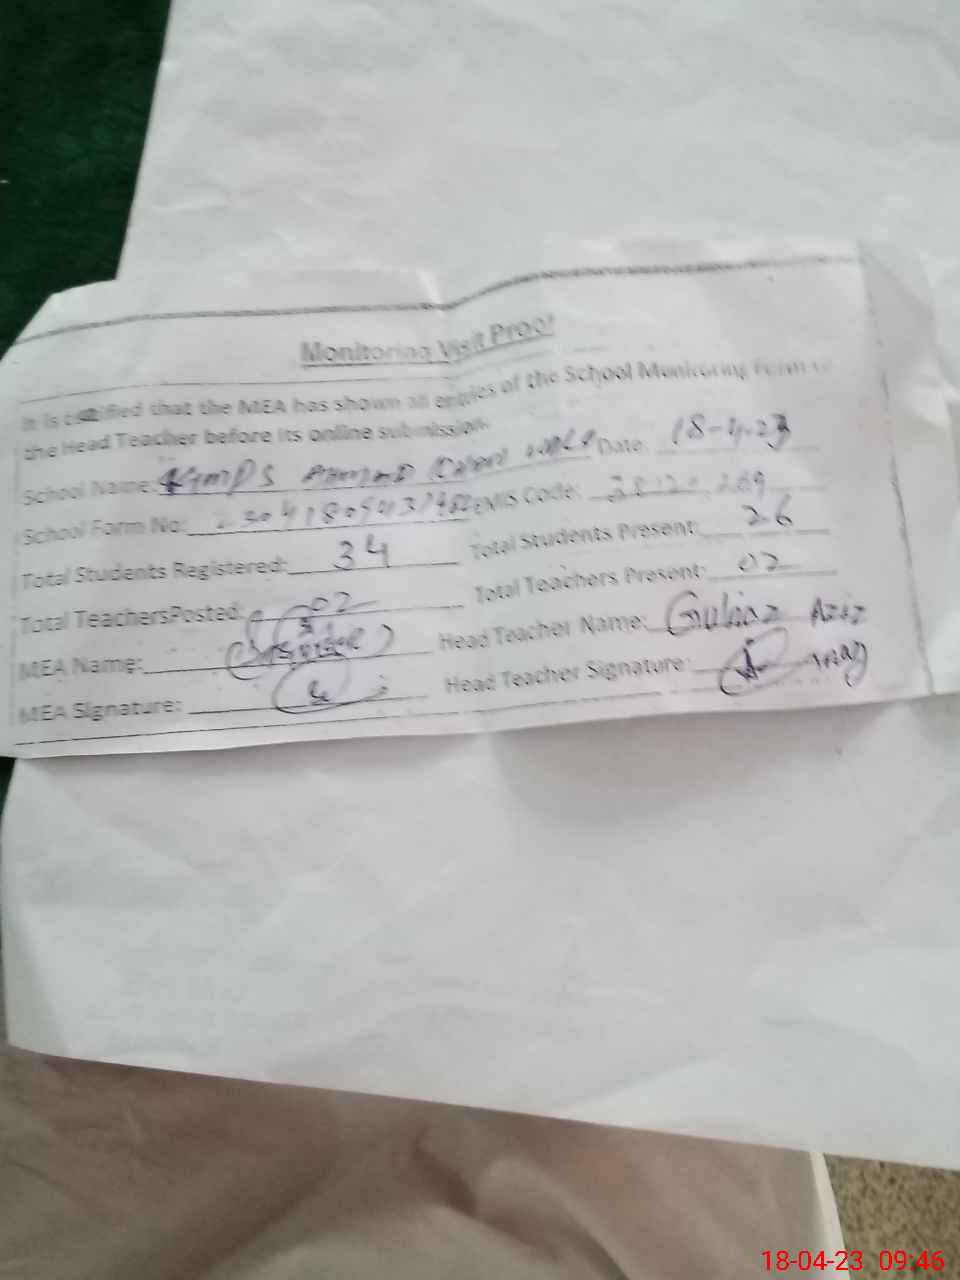 Monitoring Visit Proof
It is certified that the MEA has shown all entries of the School Monitoring Form
the Head Teacher before its online submission.
School Name: GMPS Date: 18-4-23
School Form No: EMIS Code:
Total Students Registered: 34 Total Students Present: 26
Total TeachersPosted: 02 Total Teachers Present: 02
MEA Name: Head Teacher Name: Gulnaz Aziz
MEA Signature: Head Teacher Signature:
18-04-23 09:46